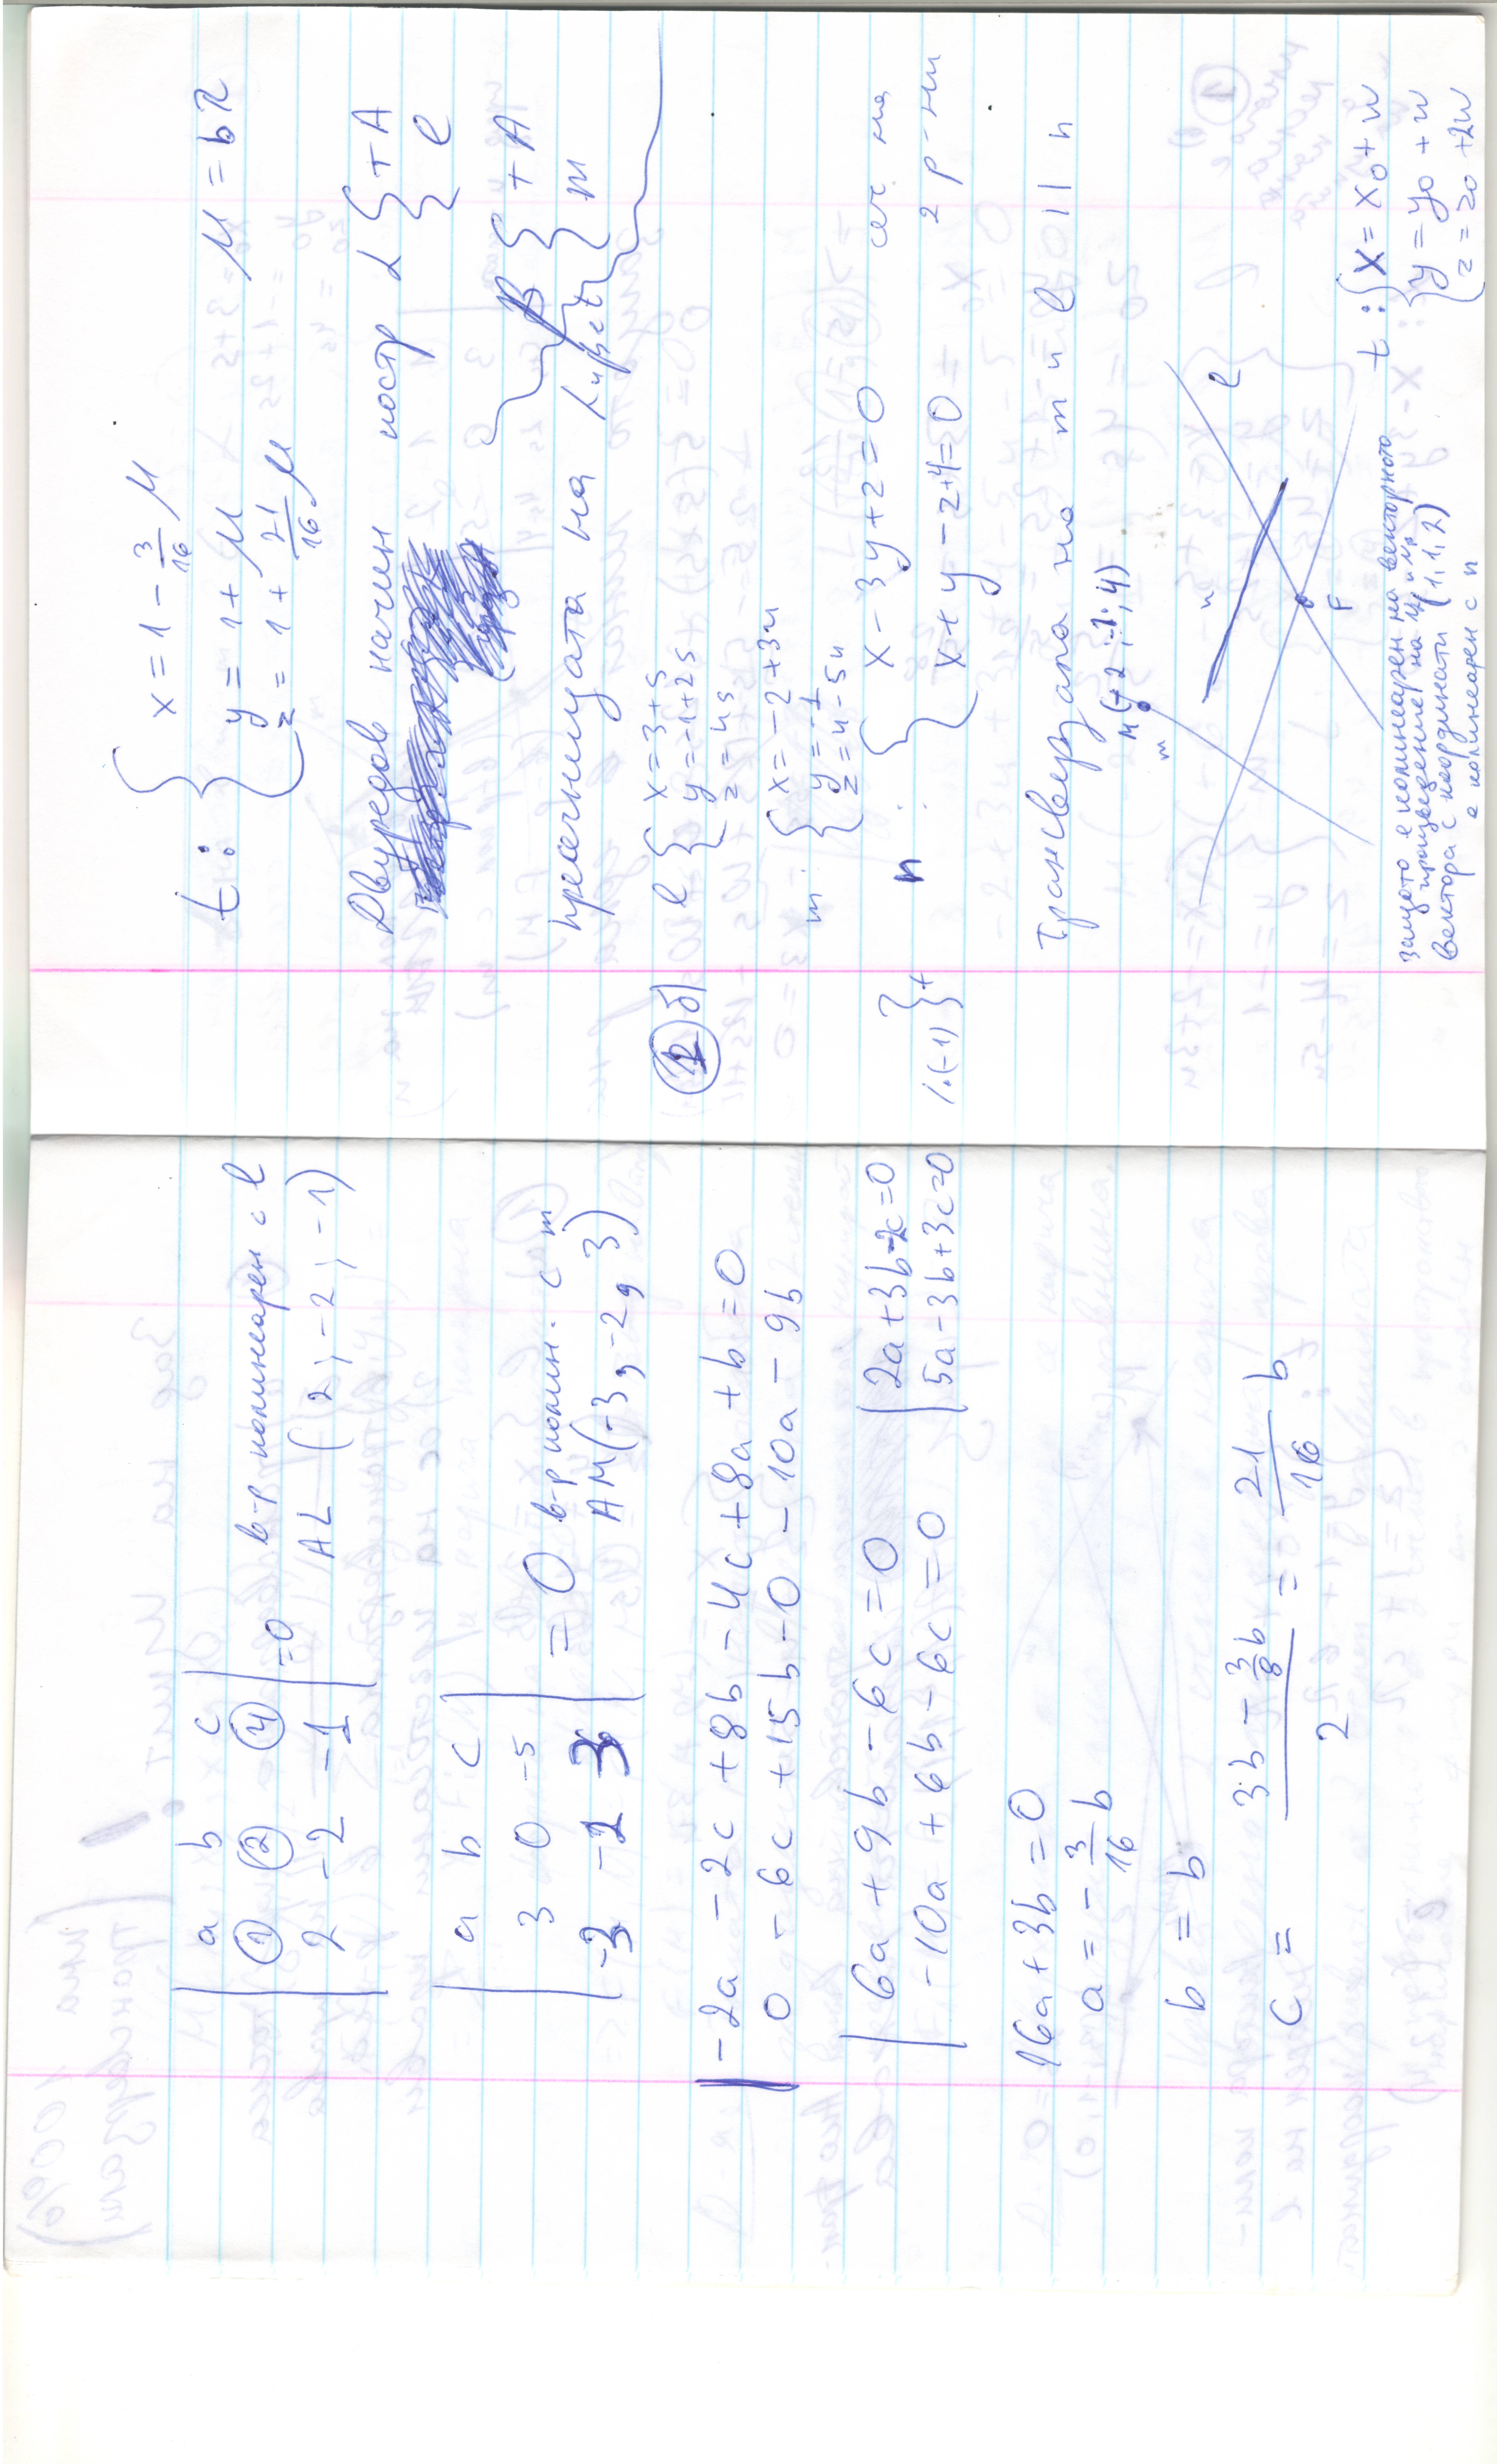 | a b c |
| ① ② ④ | =0 в-р колинеарен с l
| 2 -2 -1 | AL (2, -2, -1)
| a b c |
| 3 0 -5 | = 0 в-р колин. с m
| -3 -2 3 | AM(-3, -2, 3)
-2a -2c +8b -4c +8a +b=0
0 -6c +15b -0 -10a -9b
| 6a + 9b - 6c = 0 | 2a+3b-2c=0
| -10a + 6b - 6c = 0 | 5a-3b+3c=0
16a + 3b = 0
a = - 3/16 b
b = b
c = (3b - 3/8 b) / 2 = 21/16 b
t: { x = 1 - 3/16 μ
y = 1 + μ μ = bπ
z = 1 + 21/16 μ
Двуредов начин постр α { +A
l
β { +A
m
пресечницата на α и β е t
② б) l { x = 3+s
y = -1+2s
z = 4s
m: { x = -2 +3u
y = -1
z = 4 -5u
n: { x - 3y + 2 = 0 сеч. на
/.(-1) } + x + y - z + 4 = 0 2 р-ни
трансверзала на m и l || n
M(-2, -1, 4)
m
n
l
F
защото е колинеарен на векторното
произведение на
вектора с координати (1, 1, 2)
е колинеарен с n
t: { x = x0 + w
y = y0 + w
z = z0 + 2w